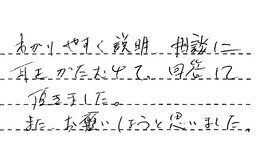 わかりやすく説明 相談に
耳をかたむけて、回答して
頂きました。
また、お願いしようと思いました。